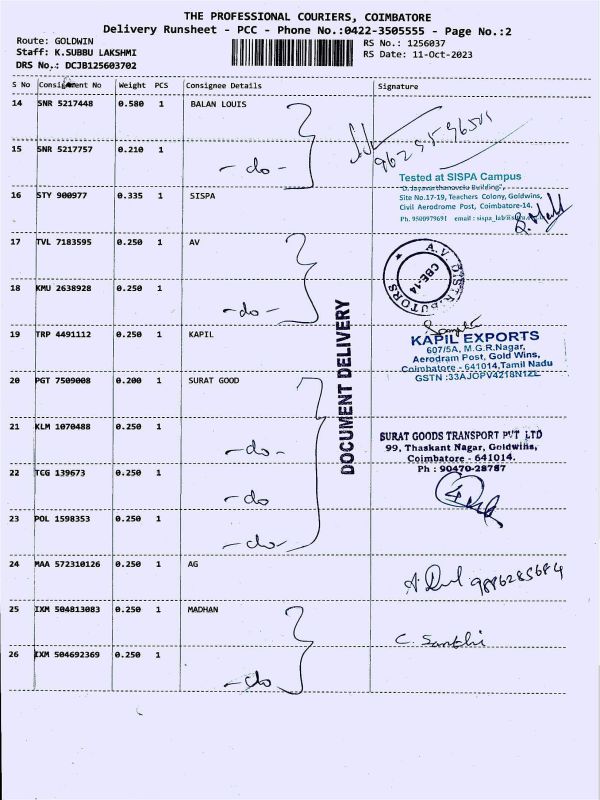 THE PROFESSIONAL COURIERS, COIMBATORE
Delivery Runsheet - PCC - Phone No.:0422-3505555 - Page No.:2
Route: GOLDWIN
Staff: K.SUBBU LAKSHMI
DRS No.: DCJB125603702
RS No.: 1256037
RS Date: 11-Oct-2023
S No Consignment No Weight PCS Consignee Details Signature
14 SNR 5217448 0.580 1 BALAN LOUIS
15 SNR 5217757 0.210 1 -do-
Tested at SISPA Campus
"D. Jayavarthanavelu Building",
Site No.17-19, Teachers Colony, Goldwins,
Civil Aerodrome Post, Coimbatore-14.
Ph. 9500979691 email :
16 STY 900977 0.335 1 SISPA
17 TVL 7183595 0.250 1 AV
A.V DISTRIBUTORS
CBE-14
18 KMU 2638928 0.250 1 -do-
DOCUMENT DELIVERY
19 TRP 4491112 0.250 1 KAPIL
KAPIL EXPORTS
607/5A, M.G.R.Nagar,
Aerodram Post, Gold Wins,
Coimbatore - 641014,Tamil Nadu
GSTN :33AJOPV4218N1ZL
20 PGT 7509008 0.200 1 SURAT GOOD
21 KLM 1070488 0.250 1 -do-
SURAT GOODS TRANSPORT PVT LTD
99, Thaskant Nagar, Goldwins,
Coimbatore - 641014.
Ph : 90470-28787
22 TCG 139673 0.250 1 -do
23 POL 1598353 0.250 1 -do-
24 MAA 572310126 0.250 1 AG
25 IXM 504813083 0.250 1 MADHAN
C. Santhi
26 IXM 504692369 0.250 1 -do